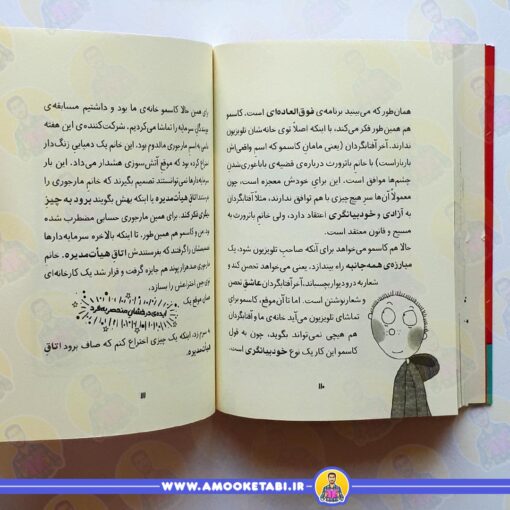 همان‌طور که می‌بینید برنامه‌ی فوق‌العاده‌ای است. کاسمو
هم همین‌طور فکر می‌کند، با اینکه اصلاً توی خانه‌شان تلویزیون
ندارند. آخر آفتابگردان (یعنی مامانِ کاسمو که اسم واقعی‌اش
باربارا است) با خانم باترورث درباره‌ی قضیه‌ی بابا‌غوری‌شدنِ
چشم‌ها موافق است. این برای خودش معجزه است، چون
معمولاً آن‌ها سر هیچ‌چیزی با هم توافق ندارند، مثلاً آفتابگردان
به آزادی و خودبیانگری اعتقاد دارد، ولی خانم باترورث به
مسیح و قانون معتقد است.
حالا هم کاسمو می‌خواهد برای آنکه صاحب تلویزیون شود، یک
مبارزه‌ی همه‌جانبه راه بیندازد. یعنی می‌خواهد تحصن کند و
شعار به در و دیوار بچسباند. آخر آفتابگردان عاشق تحصن
و شعارنوشتن است. اما تا آن موقع، کاسمو برای
تماشای تلویزیون می‌آید خانه‌ی ما و آفتابگردان
هم هیچی نمی‌تواند بگوید، چون به قول
کاسمو این کار یک نوع خودبیانگری است.
۱۱۰
رای همین حالا کاسمو خانه‌ی ما بود و داشتیم مسابقه‌ی
سرمایه را تماشا می‌کردیم. شرکت‌کننده‌ی این هفته
به اسم مارجوری مالدوم بود. این خانم یک دمپایی زنگ‌دار
کرده بود که موقع آتش‌سوزی هشدار می‌داد. این بار
سرمایه‌دارها نمی‌توانستند تصمیم بگیرند که خانم مارجوری را
اتاق هیأت‌مدیره یا اینکه بهش بگویند برود به چیز
فکر کند. برای همین مارجوری حسابی مضطرب شده
و کاسمو هم همین‌طور، تا اینکه بالاخره سرمایه‌دارها
را گرفتند که بفرستندش اتاق هیأت‌مدیره. خانم
هم جایزه گرفت و قرار شد یک کارخانه‌ای
اختراعش را بسازد.
همان موقع یک
ایده‌ی درخشان منحصر‌به‌فرد
سرم زد، اینکه یک چیزی اختراع کنم که صاف برود اتاق
هیأت‌مدیره.
۱۱۱
WWW.AMOOKETABI.IR